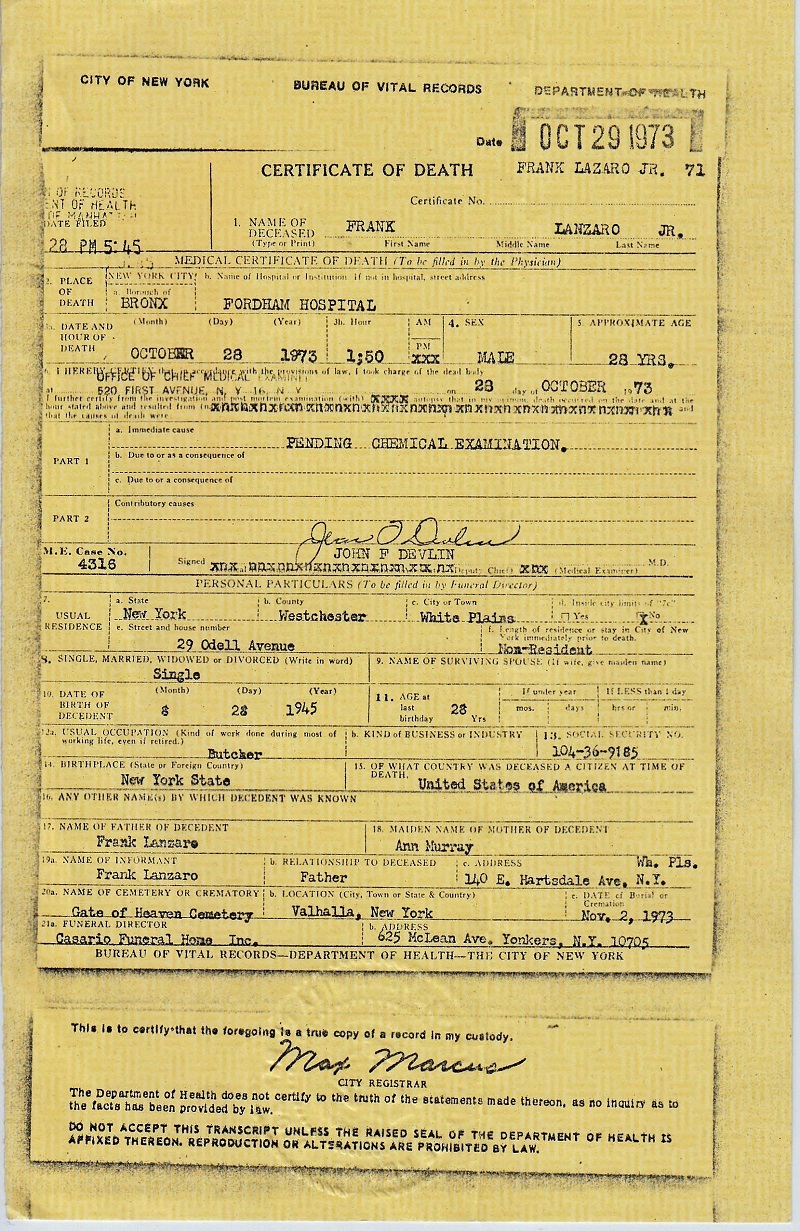 CITY OF NEW YORK BUREAU OF VITAL RECORDS DEPARTMENT OF HEALTH
Date OCT 29 1973
CERTIFICATE OF DEATH FRANK LAZARO JR. 71
OF RECORDS
ENT OF HEALTH
OF MANHAT
DATE FILED
28 PM 5:45
Certificate No.
1. NAME OF DECEASED FRANK LANZARO JR.
(Type or Print) First Name Middle Name Last Name
MEDICAL CERTIFICATE OF DEATH (To be filled in by the Physician)
2. PLACE OF DEATH NEW YORK CITY b. Name of Hospital or Institution. If not in hospital, street address
a. Borough of BRONX FORDHAM HOSPITAL
3a. DATE AND HOUR OF DEATH (Month) (Day) (Year) 3b. Hour AM PM 4. SEX 5. APPROXIMATE AGE
OCTOBER 28 1973 1;50 xxx MALE 28 YRS.
6. I HEREBY CERTIFY that in accordance with the provisions of law, I took charge of the dead body
OFFICE OF CHIEF MEDICAL EXAMINER
at 520 FIRST AVENUE, N. Y. 16, N. Y on 28 day of OCTOBER 1973
I further certify from the investigation and post mortem examination (with) xxxx autopsy that in my opinion, death occurred on the date and at the
hour stated above and resulted from and
that the causes of death were
PART 1 a. Immediate cause
PENDING CHEMICAL EXAMINATION.
b. Due to or as a consequence of
c. Due to or a consequence of
PART 2 Contributory causes
John F Devlin
JOHN F DEVLIN
M.E. Case No. 4316 Signed (Deputy Chief) (Medical Examiner) M.D.
PERSONAL PARTICULARS (To be filled in by Funeral Director)
7. USUAL RESIDENCE a. State b. County c. City or Town d. Inside city limits of "7c"
New York Westchester White Plains Yes X No
e. Street and house number f. Length of residence or stay in City of New York immediately prior to death.
29 Odell Avenue Non-Resident
8. SINGLE, MARRIED, WIDOWED or DIVORCED (Write in word) 9. NAME OF SURVIVING SPOUSE (If wife, give maiden name)
Single
10. DATE OF BIRTH OF DECEDENT (Month) (Day) (Year) 11. AGE at last birthday If under year If LESS than 1 day
28 1945 28 Yrs mos. days hrs or min.
12a. USUAL OCCUPATION (Kind of work done during most of working life, even if retired.) b. KIND of BUSINESS or INDUSTRY 13. SOCIAL SECURITY NO.
Butcher 104-36-9185
14. BIRTHPLACE (State or Foreign Country) 15. OF WHAT COUNTRY WAS DECEASED A CITIZEN AT TIME OF DEATH.
New York State United States of America
16. ANY OTHER NAME(s) BY WHICH DECEDENT WAS KNOWN
17. NAME OF FATHER OF DECEDENT 18. MAIDEN NAME OF MOTHER OF DECEDENT
Frank Lanzaro Ann Murray
19a. NAME OF INFORMANT b. RELATIONSHIP TO DECEASED c. ADDRESS Wh. Pls.
Frank Lanzaro Father 140 E. Hartsdale Ave, N.Y.
20a. NAME OF CEMETERY OR CREMATORY b. LOCATION (City, Town or State & Country) c. DATE of Burial or Cremation
Gate of Heaven Cemetery Valhalla, New York Nov. 2, 1973
21a. FUNERAL DIRECTOR b. ADDRESS
Casario Funeral Home Inc. 625 McLean Ave. Yonkers, N.Y. 10705
BUREAU OF VITAL RECORDS—DEPARTMENT OF HEALTH—THE CITY OF NEW YORK
This is to certify that the foregoing is a true copy of a record in my custody.
Max Marcus
CITY REGISTRAR
The Department of Health does not certify to the truth of the statements made thereon, as no inquiry as to
the facts has been provided by law.
DO NOT ACCEPT THIS TRANSCRIPT UNLESS THE RAISED SEAL OF THE DEPARTMENT OF HEALTH IS
AFFIXED THEREON. REPRODUCTION OR ALTERATIONS ARE PROHIBITED BY LAW.